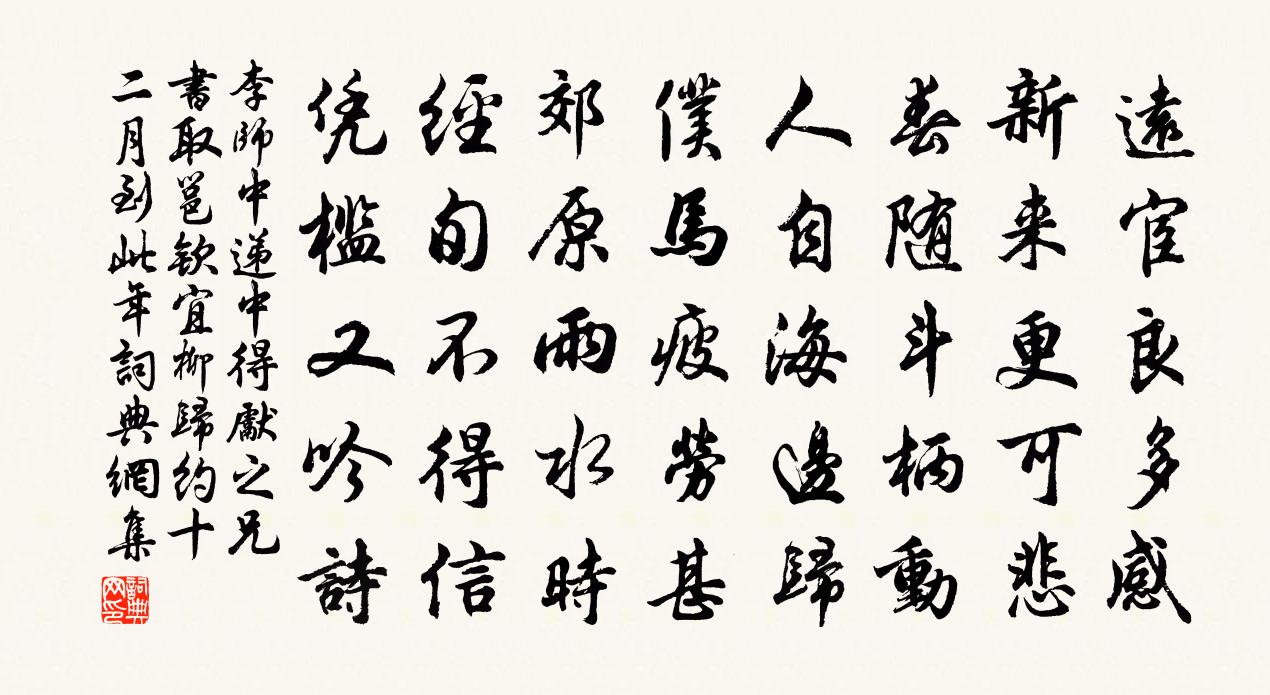 遠宦良多感
新来更可悲
春隨斗柄動
人自海邊歸
僕馬疲勞甚
郊原雨水時
經旬不得信
凭檻又吟詩
李師中遞中得獻之兄
書取邕欽宜柳歸約十
二月到此年詞典網集
詞典網印